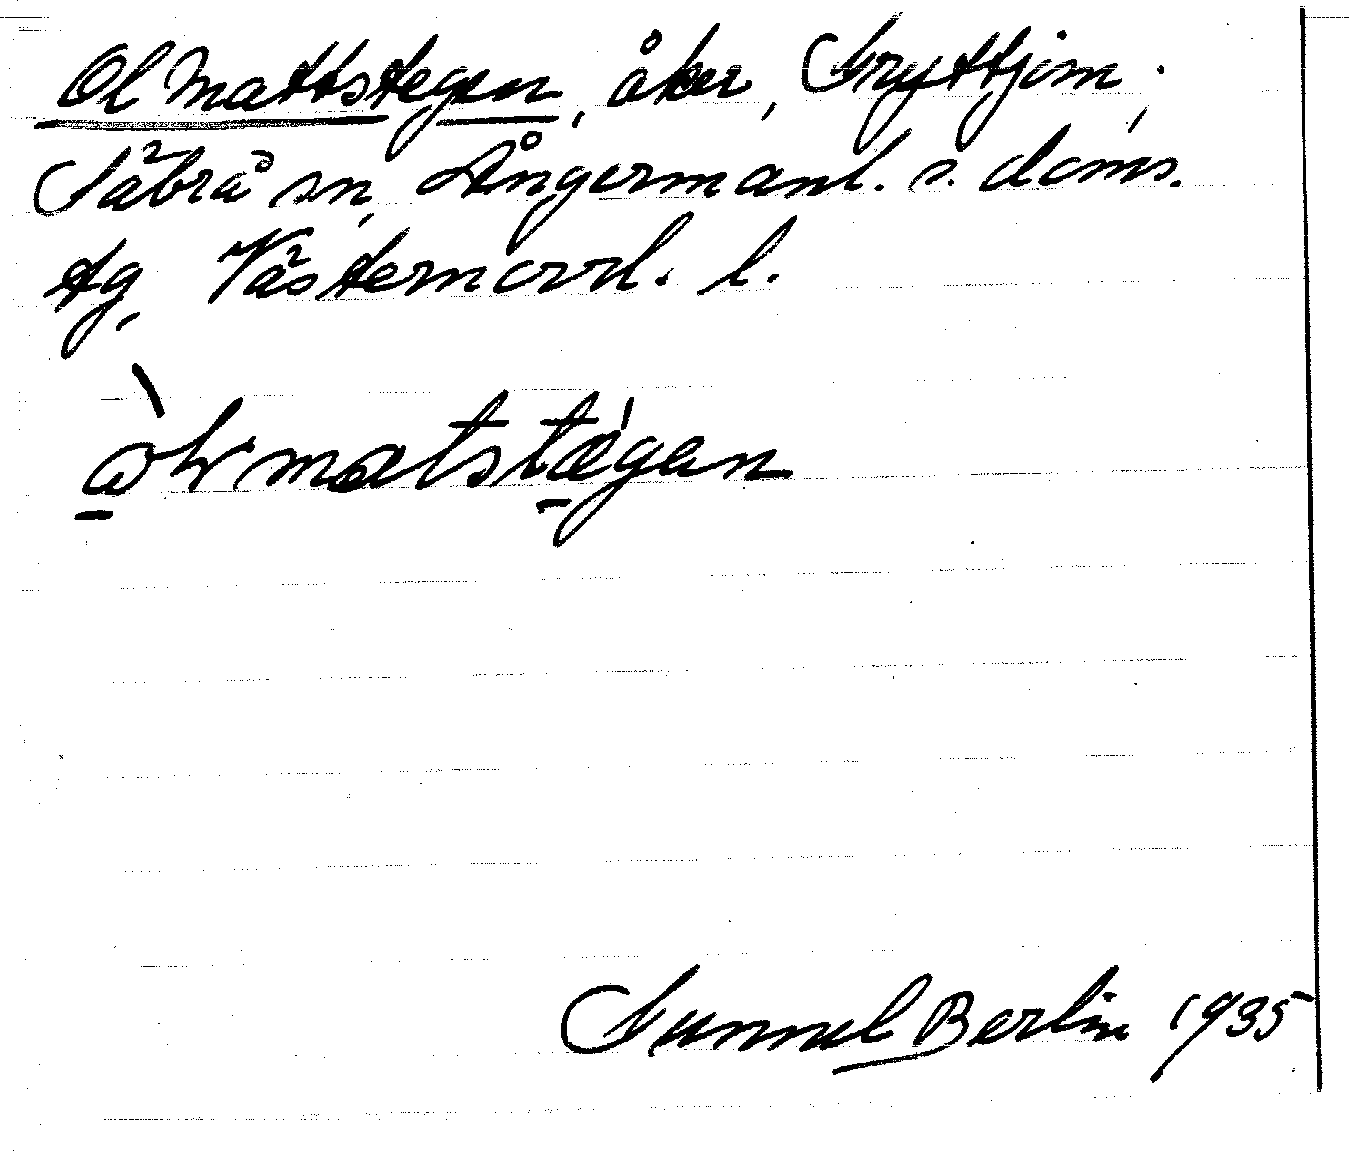 Ol Mattstegen, åker, Gryttjom,
Säbrå sn, Ångermanl. s. doms.
tg, Västernorrl. l.
Gunnel Berlin 1935